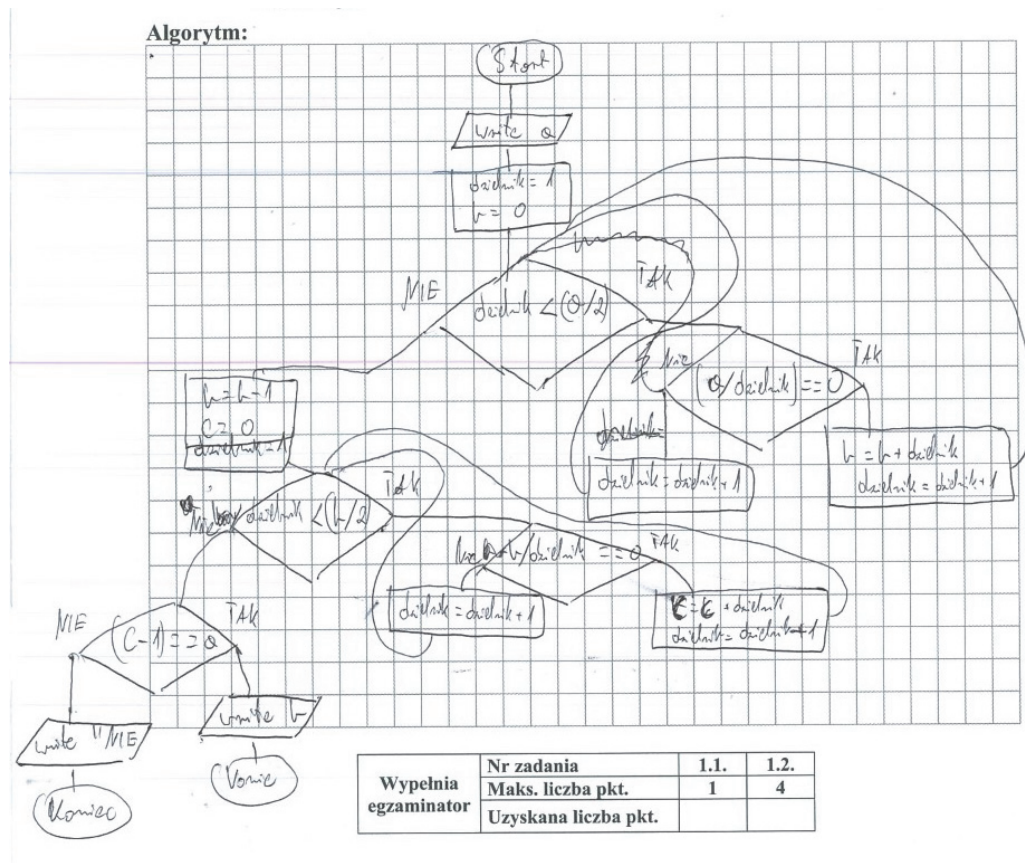 Algorytm:
Start
write a
dzielnik = 1
b = 0
NIE
TAK
dzielnik < (a/2)
Nie
TAK
(a/dzielnik) == 0
b = b - 1
C = 0
dzielnik = 1
dzielnik = dzielnik + 1
b = b + dzielnik
dzielnik = dzielnik + 1
TAK
dzielnik < (b/2
b/dzielnik == 0
TAK
dzielnik = dzielnik + 1
+ dzielnik
dzielnik = dzielnik + 1
NIE
TAK
(C-1) == a
write "NIE
write b
Koniec
Wypełnia
egzaminator
Nr zadania 1.1. 1.2.
Maks. liczba pkt. 1 4
Uzyskana liczba pkt.